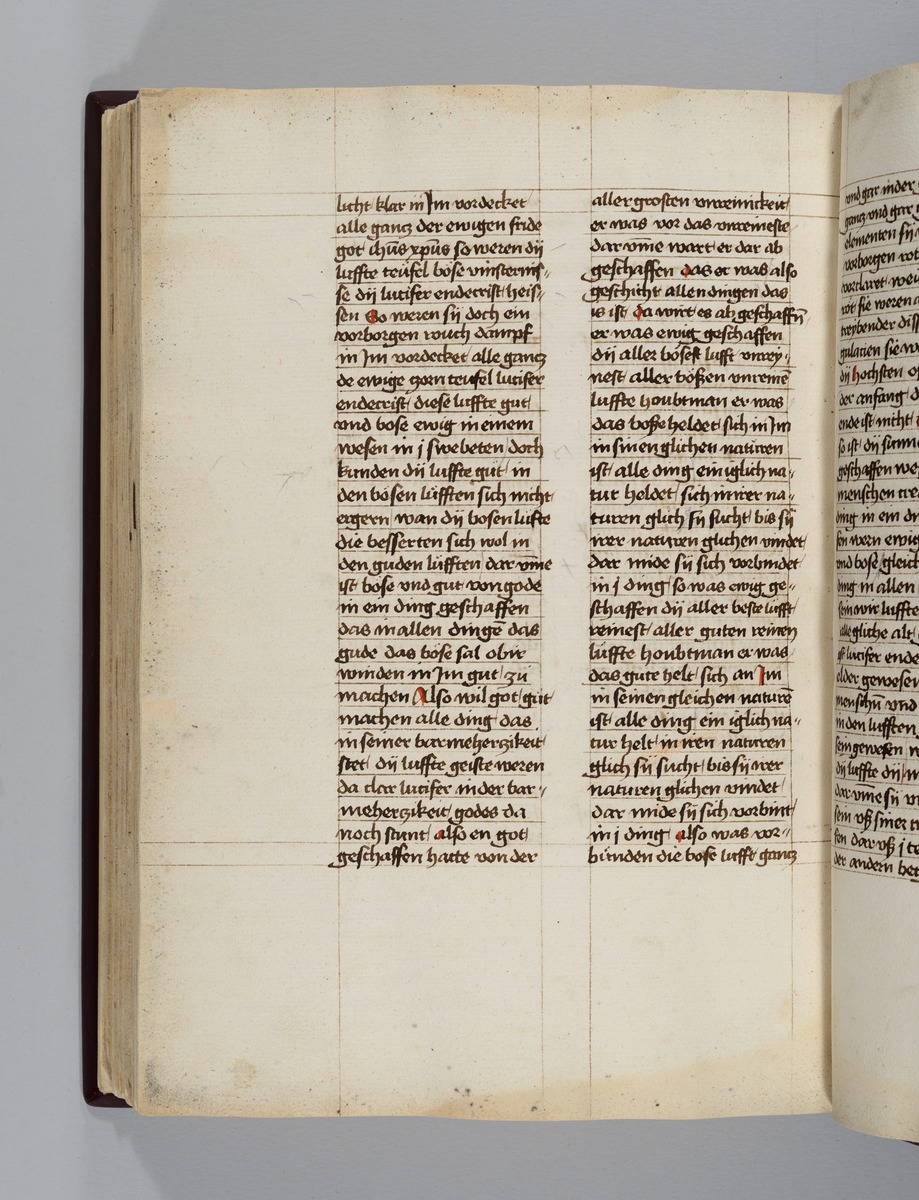 licht klar in Jm vordecket
alle gancz der ewigen fride
got ihūs xpūs so weren dij
luffte teufel böse vinsternis-
se dij lucifer endecrist heis-
sen So weren sij doch ein
vorborgen rouch dampf
in Jm vordecket alle gancz
de ewige zorn teufel lucifer
endecrist diese luffte gut
vnd bose ewig in einem
wesen in j swebeten doch
kunden dij luffte gut in
den bösen lüfften sich nicht
ergern wan dij bosen lüfte
die besserten sich wol in
den guden lüfften dar vm̄e
ist bose vnd gut von gode
in ein ding geschaffen
das in allen dingē das
gude das böse sal obir
winden in Jm gut zü
machen Also wil got güt
machen alle ding das
in seiner barmeherzikeit
stet dij luffte geiste weren
da clar lucifer in der bar-
meherzikeit godes da
noch stunt also en got
geschaffen hatte von der
aller grosten vnreinickeit
er was vor das vnreineste
dar vm̄e wart er dar ab
geschaffen das er was also
geschicht allen dingen das
is ist da wirt es ab geschaffn̄
er was ewig geschaffen
dij aller bösest lufft vnrey-
nest aller bößen vnreinē
luffte houbtman er was
das boße heldet sich in Jm
in sinen glichen naturen
ist alle ding ein iglich na-
tur heldet sich in irer na-
turen glich sij sucht bis sij
irer naturen glichen vindet
dar mide sij sich vorbindet
in j ding so was ewig ge-
schaffen dij aller beste lufft
reinest aller guten reinen
luffte houbtman er was
das gute helt sich an Jm
in seinen gleichen naturē
ist alle ding ein iglich na-
tur helt in iren naturen
glich sij sucht bis sij irer
naturen glichen vindet
dar mide sij sich vorbint
in j ding also was vor-
bunden die bose lufft gancz
vnd gar in der
gancz vnd gar
elementen sij
vorborgen
der anfang
ende ist nicht
menschen
ding in ein
vnd böse gleich
ding in allen
lucifer ende
in den lufften
der andern